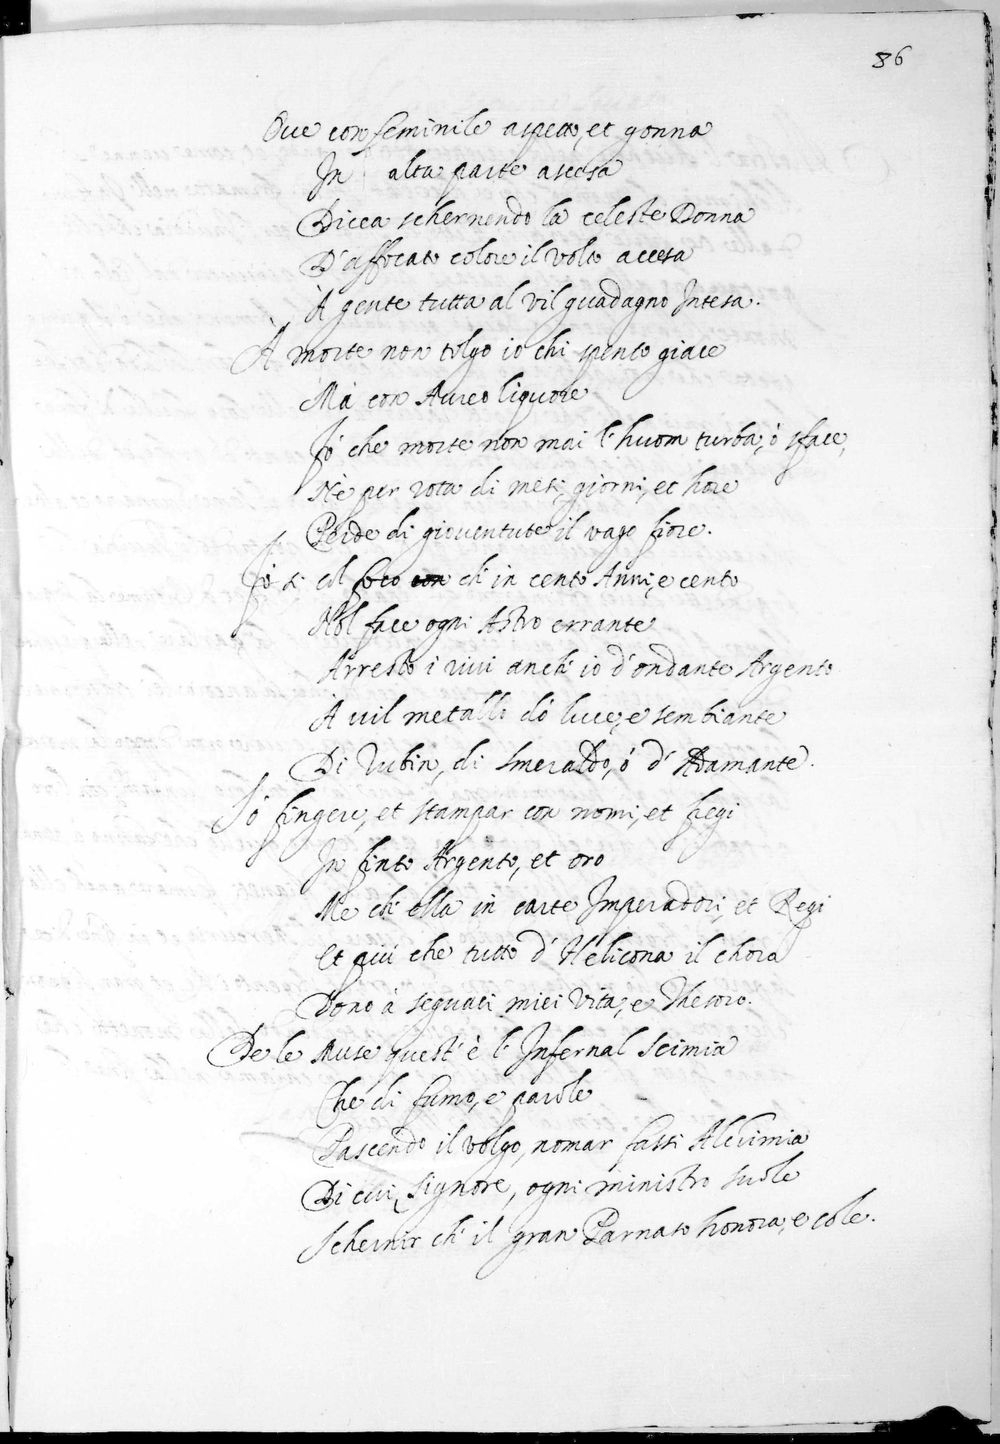 86
Oue con feminile aspetto, et gonna
In alta parte ascesa
Dicea schernendo la celeste Donna
D'affocato colore il volto accesa
À gente tutta al vil guadagno Intesa.
À morte non tolgo io chi spento giace
Mà con Aureo liquore
Fò che morte non mai l'huom turba, ò sface,
Nè per rota di mesi, giorni, et hore
Perde di giouentute il vago fiore.
Fò si col foco con ch'in cento Anni, e cento
Nol face ogni Astro errante
Arresto i rivi anch'io d'ondante Argento
À uil metallo dò luce, e sembiante
Di Rubin, di Smeraldo, ò d'Adamante.
Sò fingere, et stampar con nomi, et fregi
In finto Argento, et oro
Me ch'ella in carte Imperadori, et Regi
Et piú che tutto d'Helicona il choro
Dono à seguaci miei Vita, e Thesoro.
De le Muse quest'è l'Infernal Scimia
Che di fumo, e parole
Pascendo il volgo, nomar fassi Alchimia
Di cui, Signore, ogni ministro suole
Schernir ch'il gran Parnaso honora, e cole.